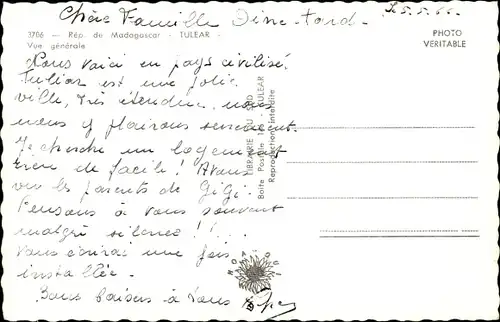 Chère Famille Dine-Tord-
Le 5.5.66.
3706 — Rép. de Madagascar - TULEAR -
Vue générale
PHOTO
VERITABLE
Nous voici en pays civilisé.
Tuléar est une jolie
ville, très étendue, nous
nous y plaisons
Je cherche un logement
rien de facile! Avons
vu les parents de GiGi.
Pensons à vous souvent
malgré silence!!...
Vous écrirai une fois
installée.
Bons baisers à tous
LIBRAIRIE DU SUD
Boite Postale - TULEAR
Reproduction interdite